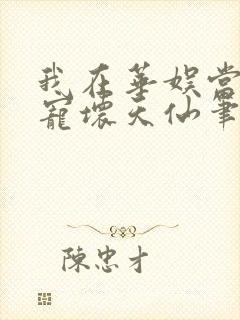 我在華娛當
寵壞天仙筆
陳忠才